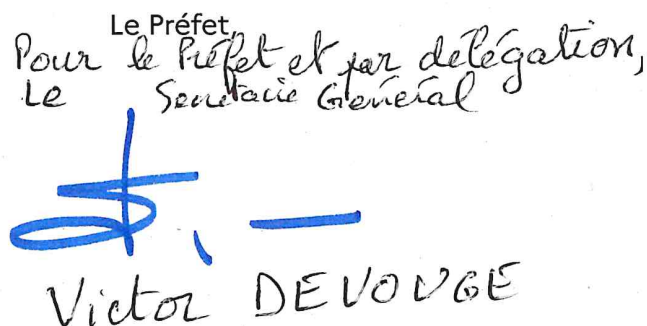 Le Préfet,
Pour le Préfet et par délégation,
Le Secrétaire Général
Victor DEVOUGE